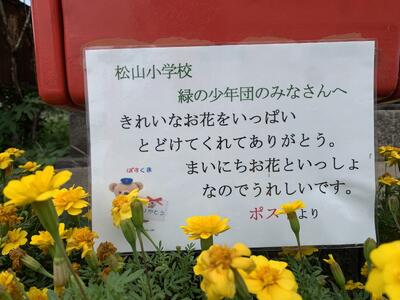 松山小学校
緑の少年団のみなさんへ
きれいなお花をいっぱい
とどけてくれてありがとう。
まいにちお花といっしょ
なのでうれしいです。
ぽすくま
ポスより